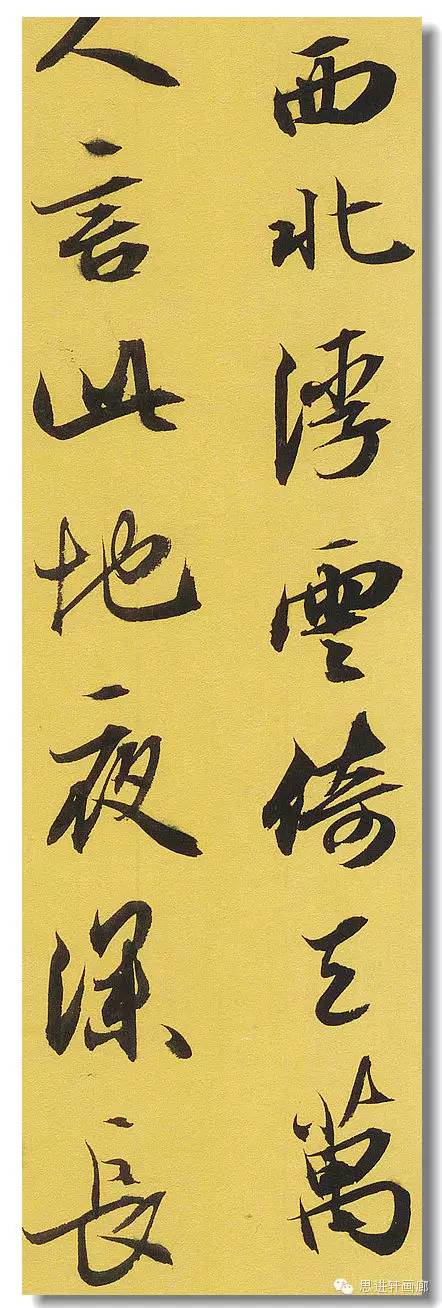 西北浮雲倚天萬
人言此地夜深長
思进轩画廊